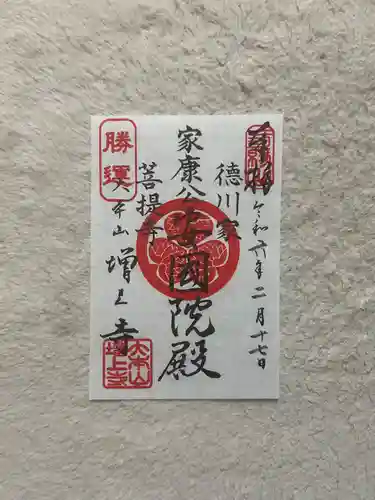 奉拝
令和六年二月十七日
徳川家
家康公安國院殿
菩提寺
勝運
大本山
増上寺
大本山
増上寺